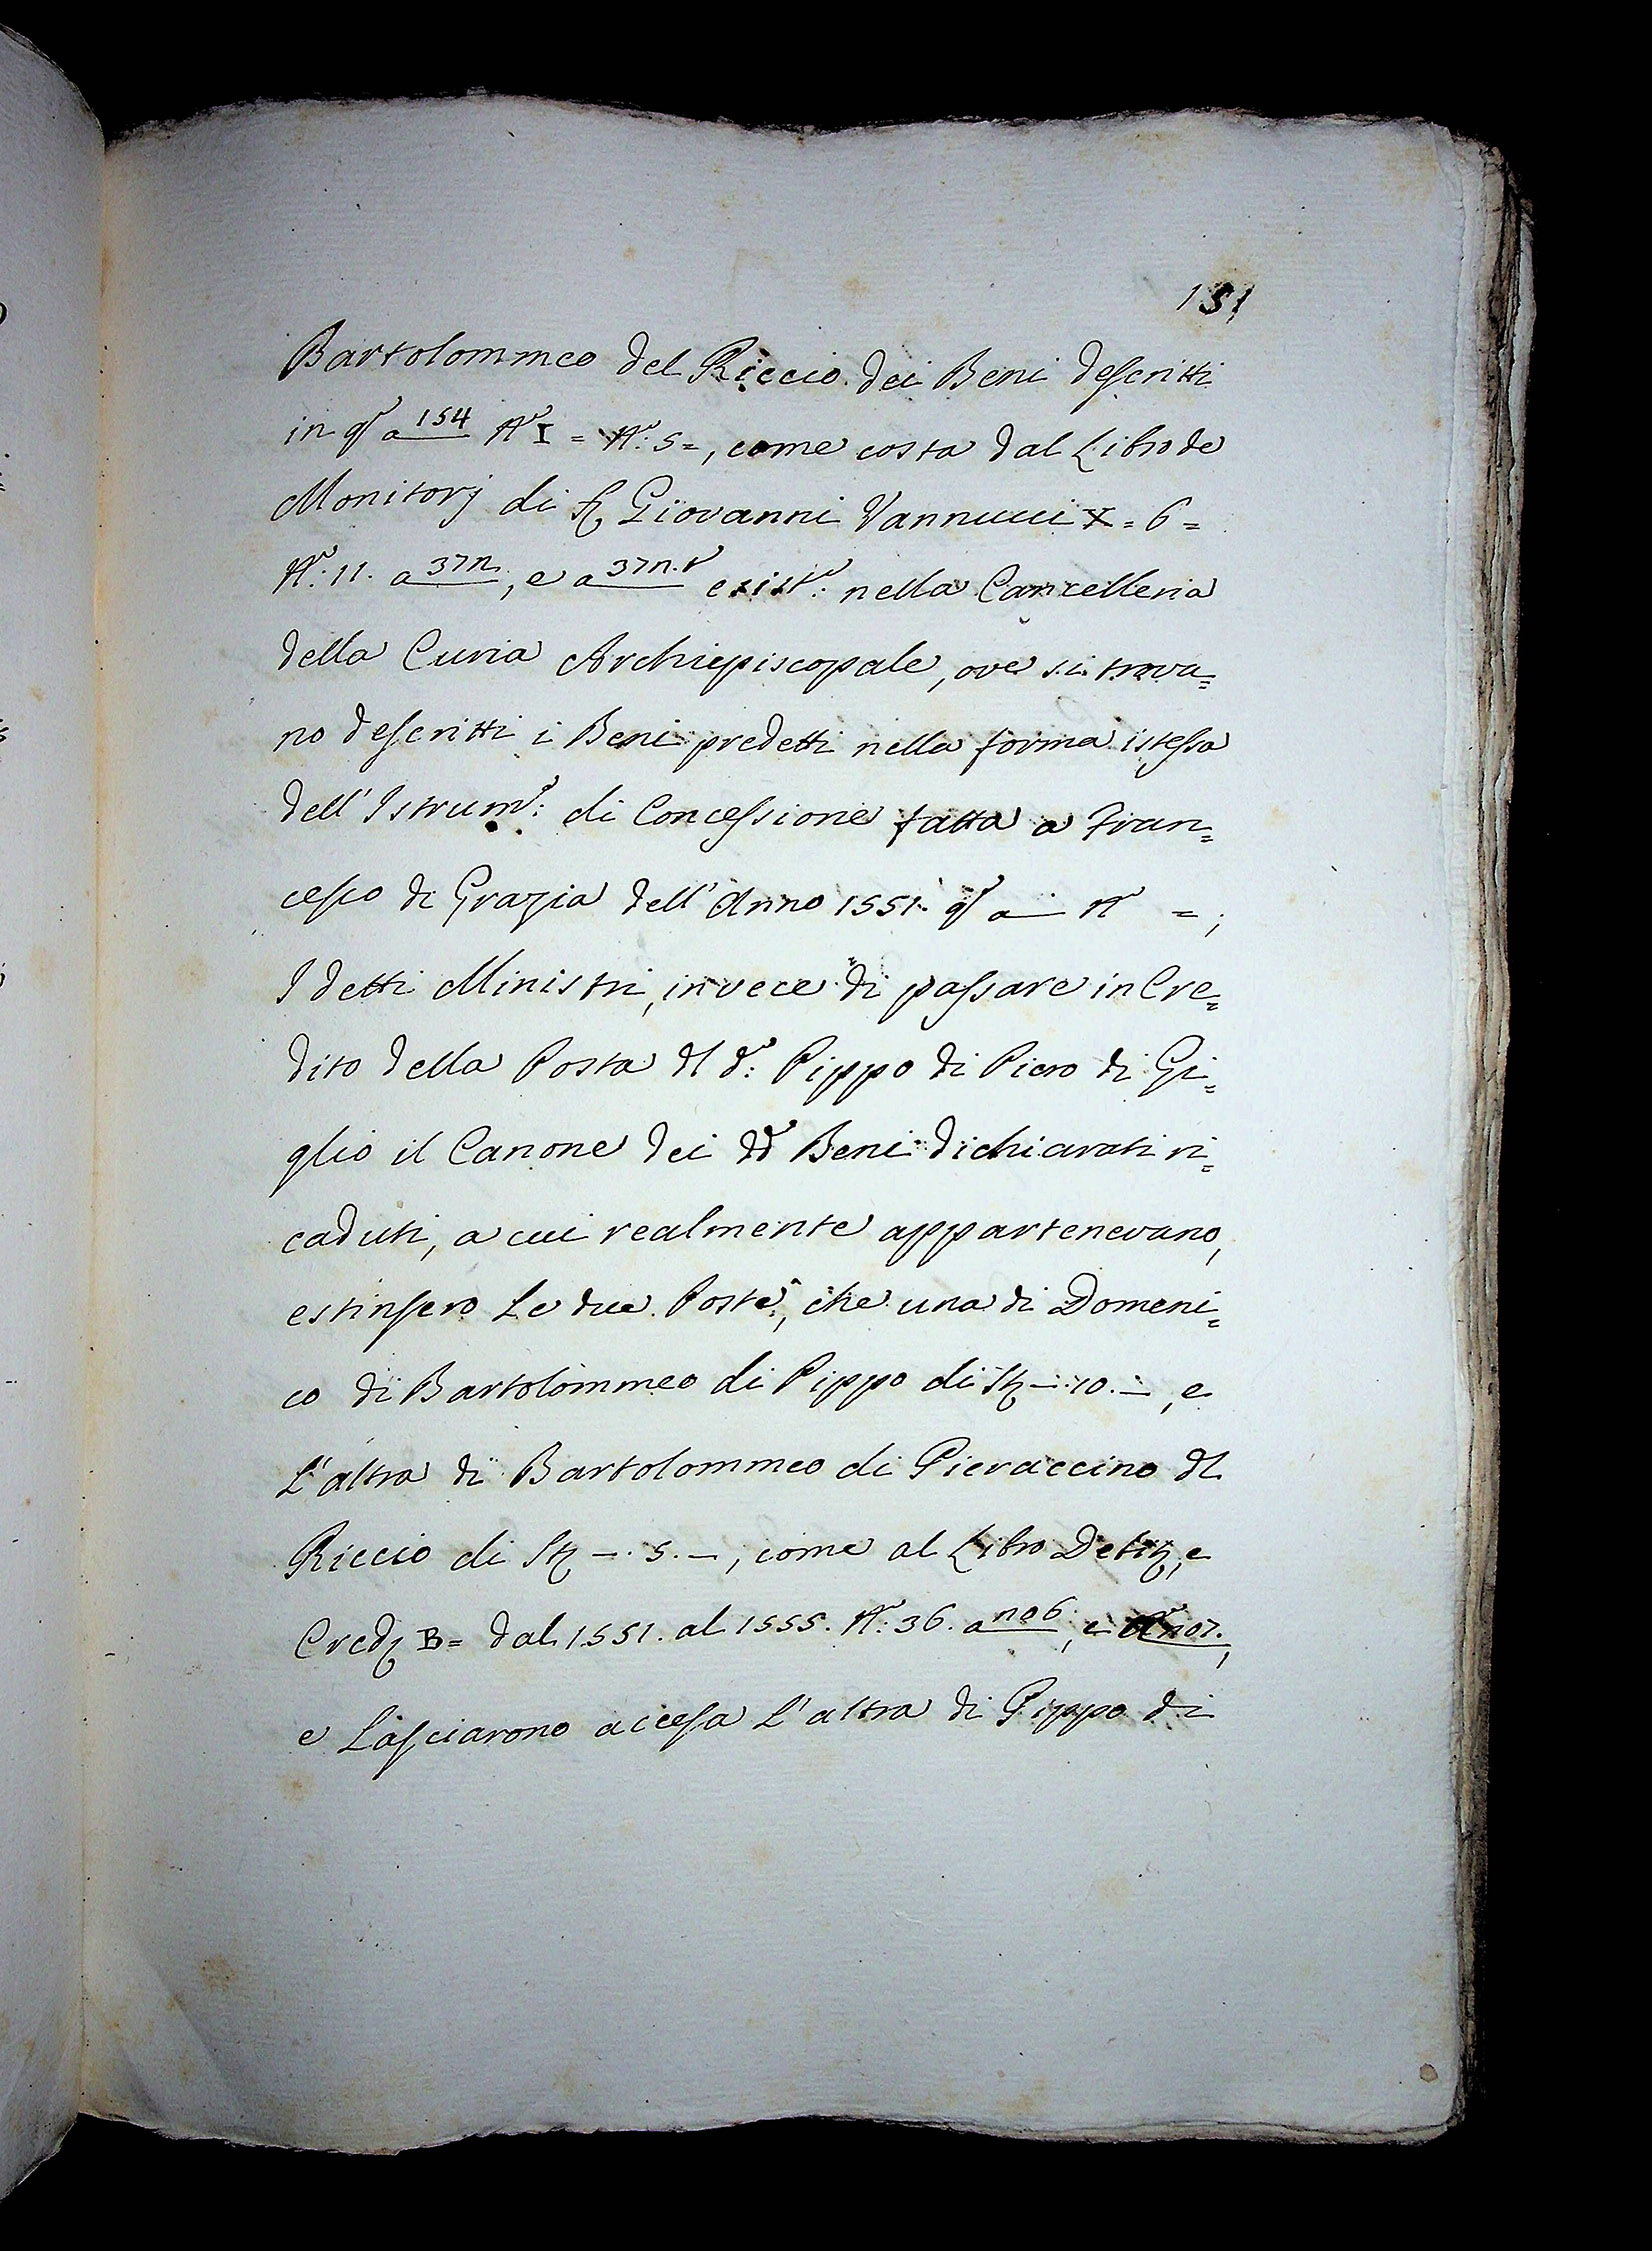 151
Bartolommeo del Riccio dei Beni descritti
in qº a 154 Nº I = Nº: 5=, come costa dal Libro de
Monitorj di Giovanni Vannucci X=6=
Nº: 11. a 37n., e a 37n.t esistº: nella Cancelleria
della Curia Archiepiscopale, ove si trova=
no descritti i Beni predetti nella forma istessa
dell'Istrumº: di Concessione fatta a Fran=
cesco di Grazia dell'Anno 1551. qº a Nº =;
I detti Ministri, invece di passare in Cre=
dito della Posta dl dº: Pippo di Piero di Gi=
glio il Canone dei dd Beni dichiarati ri=
caduti, a cui realmente appartenevano,
estinsero Le due Poste, che una di Domeni=
co di Bartolommeo di Pippo di St —.10.—, e
L'altra di Bartolommeo di Pieraccino dl
Riccio di St —. 5.—, come al Libro Debit, e
Cred B= dal 1551. al 1555. Nº: 36. a n06, e n07.,
e Lasciarono accesa L'altra di Pippo di